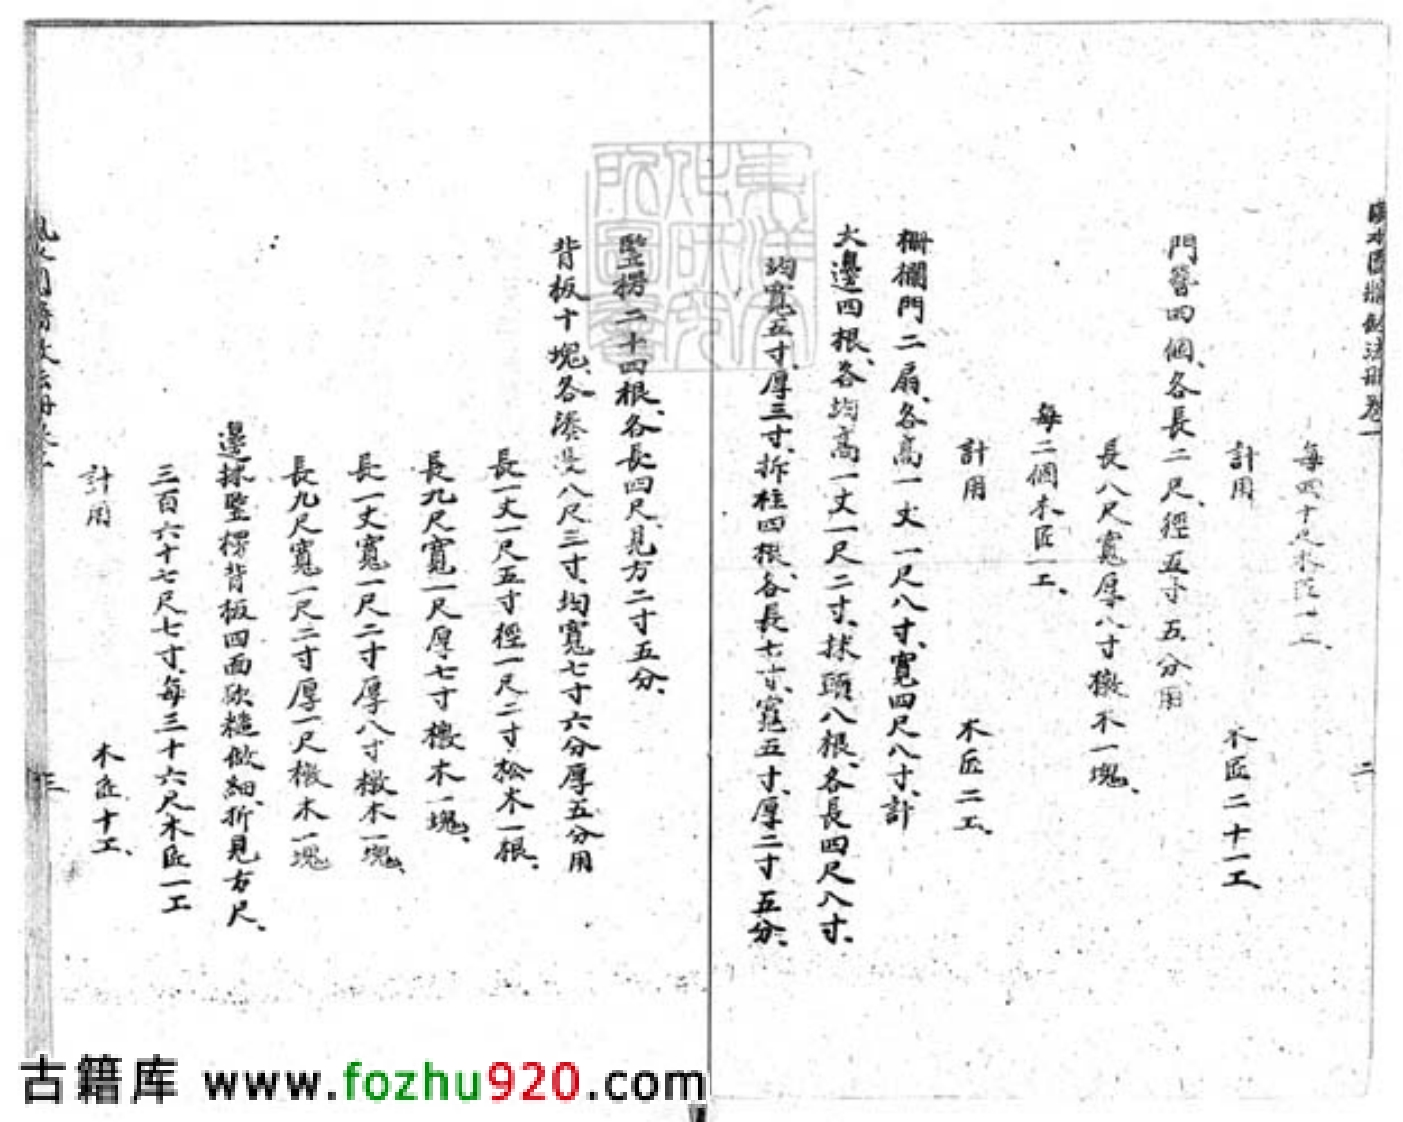 每四十尺木匠一工、
計用
木匠二十一工、
門簪四個、各長二尺、徑五寸五分、用
長八尺寬厚八寸橔木一塊、
每二個木匠一工、
計用
木匠二工、
柵欄門二扇、各高一丈一尺八寸、寬四尺八寸、計
大邊四根、各均高一丈一尺二寸、抹頭八根、各長四尺八寸、
均寬五寸、厚三寸、拆柱四橔、各長七寸、寬五寸、厚二寸五分、
豎楞二十四根、各長四尺、見方二寸五分、
背板十塊、各湊長八尺三寸、均寬七寸六分厚五分用
長一丈一尺五寸徑一尺二寸松木一根、
長九尺寬一尺厚七寸橔木一塊、
長一丈寬一尺二寸厚八寸橔木一塊、
長九尺寬一尺二寸厚一尺橔木一塊
邊抹豎楞背板四面砍糙做細、折見方尺、
三百六十七尺七寸、每三十六尺木匠一工
計用
木匠十工、
二
三
東洋文化研究所圖書
古籍库 www.fozhu920.com